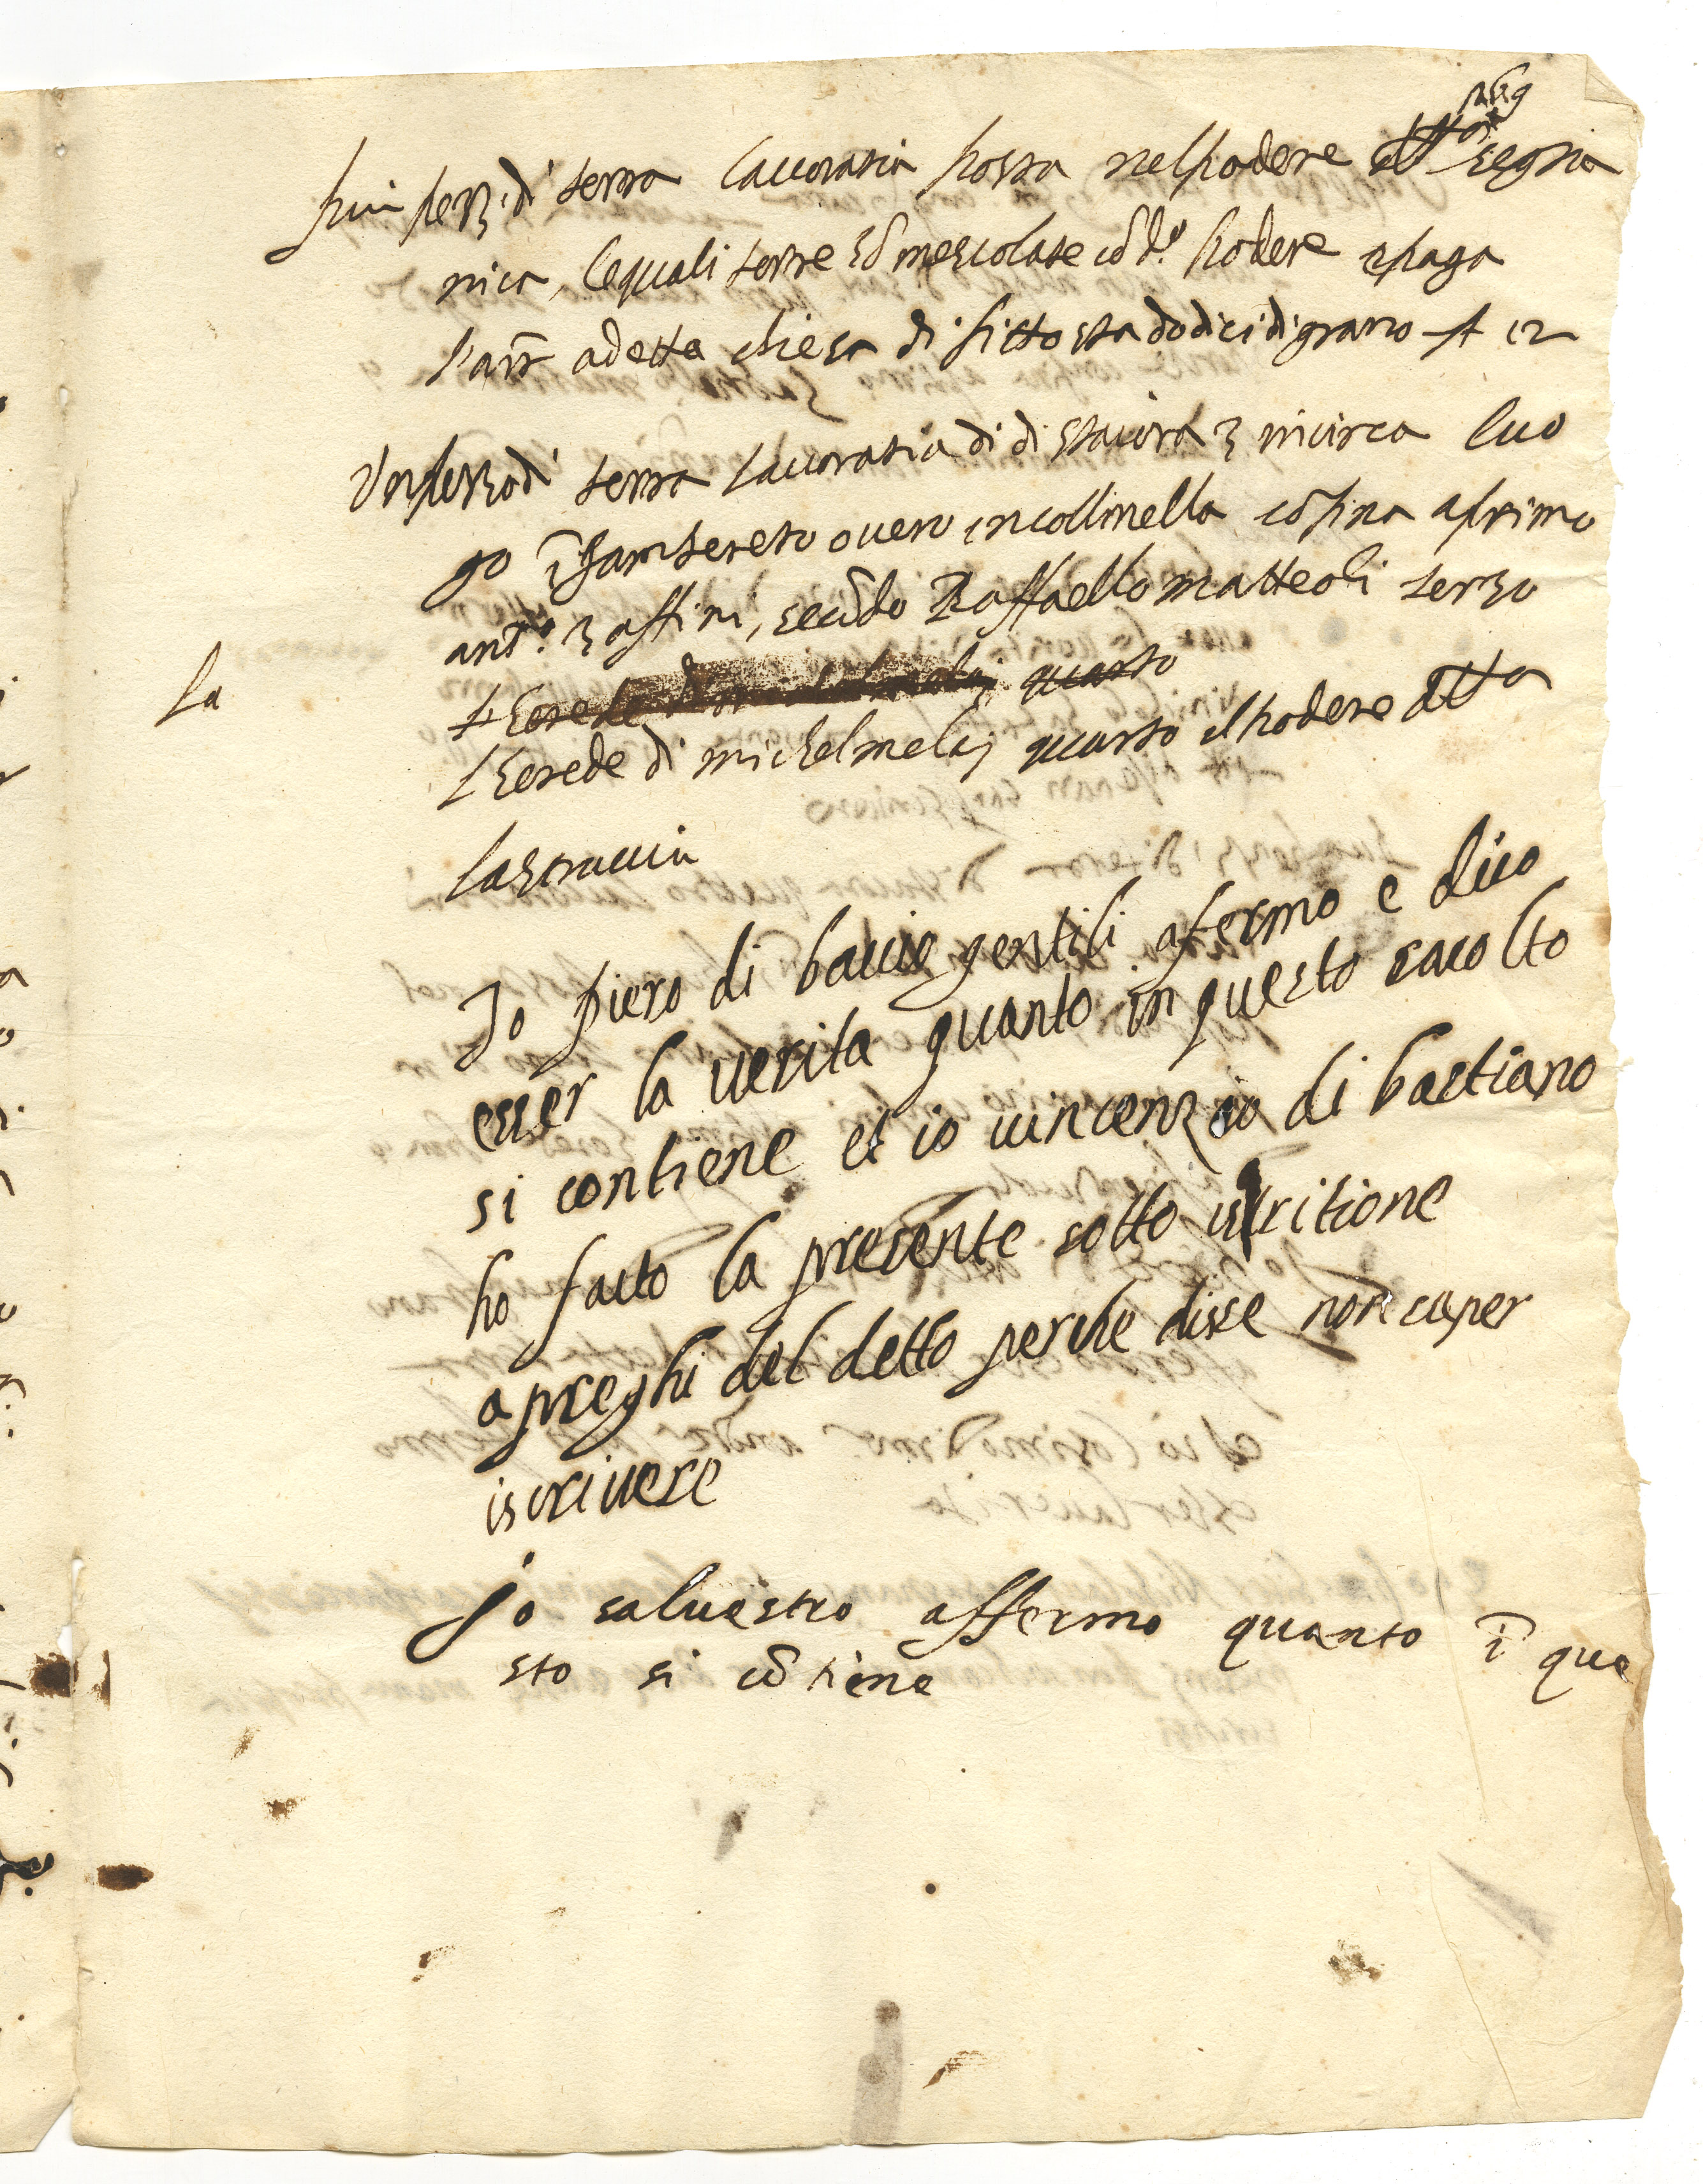 piu pezi di terra lauoratia posta nel podere segna
nica, lequali terre sō mescolate cō d.º podere e paga
l'año a detta chiesa di fitto sta dodici di grano st 12
Un pezo di terra lauoratia di di staiora 3 incirca luo
go ī gambereto ouero incollinella cōfina a primo
ant.º zaffini, secūdo Raffaello matteoli terzo
L herede quarto
La
L herede di michel melaj quarto il podere detto
lastruccia
Io piero di baccio gentili afermo e dico
esser la uerita quanto in questo racolto
si contiene et io uincenzio di bastiano
ho fatto la presente sotto iscritione
a preghi del detto perche disse non saper
iscriuere
Jo saluestro affermo quanto ī que
sto si cōtiene